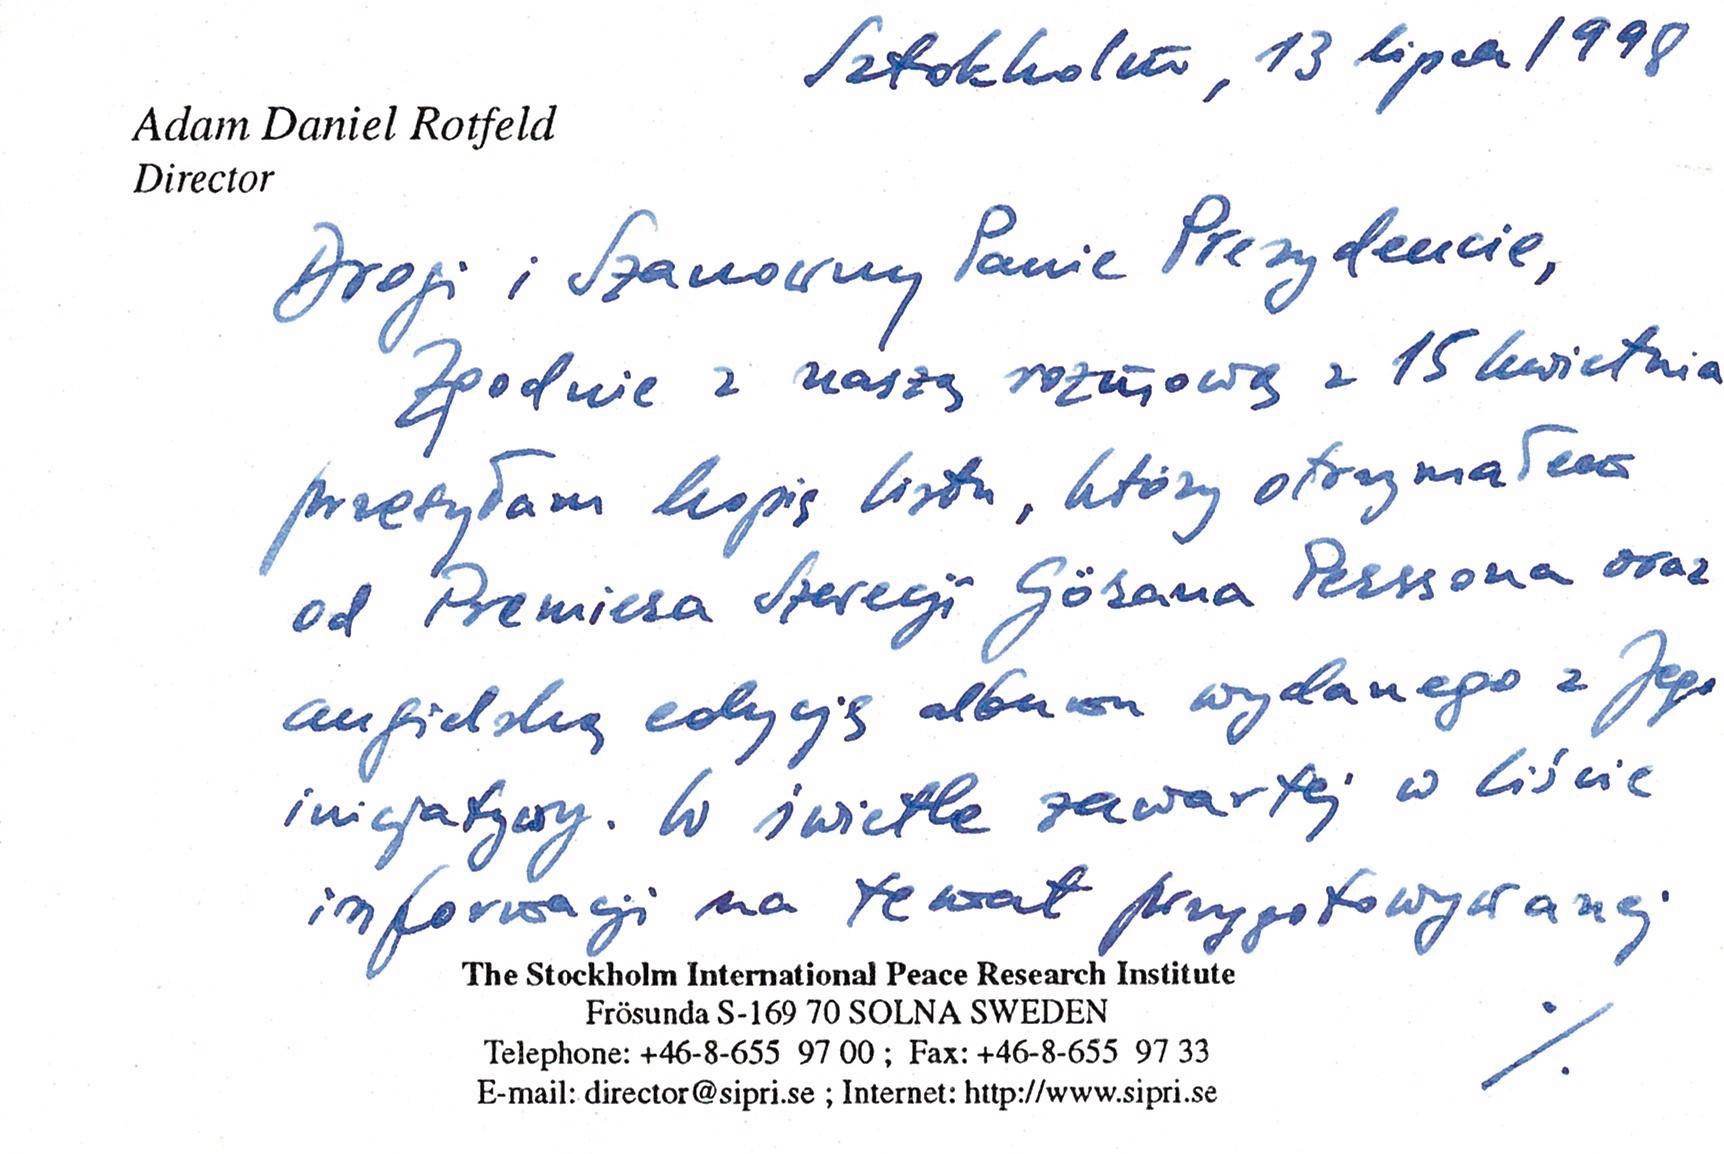 Sztokholm, 13 lipca 1998
Adam Daniel Rotfeld
Director
Drogi i Szanowny Panie Prezydencie,
Zgodnie z naszą rozmową z 15 kwietnia
przesyłam kopię listu, który otrzymałem
od Premiera Szwecji Görana Perssona oraz
angielską edycję albumu wydanego z Jego
inicjatywy. W świetle zawartej w liście
informacji na temat przygotowywanej
The Stockholm International Peace Research Institute
Frösunda S-169 70 SOLNA SWEDEN
Telephone: +46-8-655 97 00 ; Fax: +46-8-655 97 33
E-mail: director@sipri.se ; Internet: http://www.sipri.se
./.